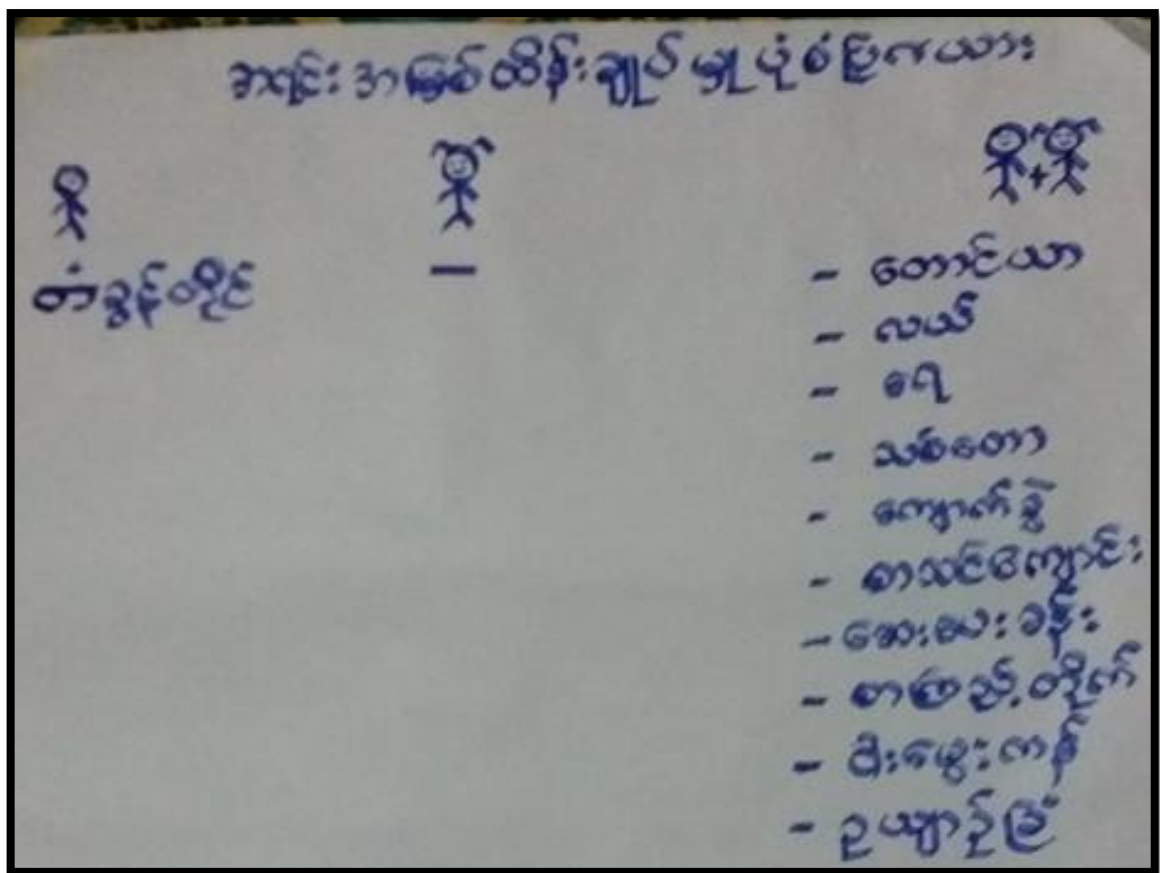 အရင်းအမြစ်ထိန်းချုပ်မှုပုံစံပြဇယား
တံခွန်တိုင်
—
- တောင်ယာ
- လယ်
- ရေ
- သစ်တော
- ကျောက်ခွဲ
- စာသင်ကျောင်း
- ဆေးပေးခန်း
- စာကြည့်တိုက်
- မီးမွေးကန်
- ဥယျာဉ်ခြံ